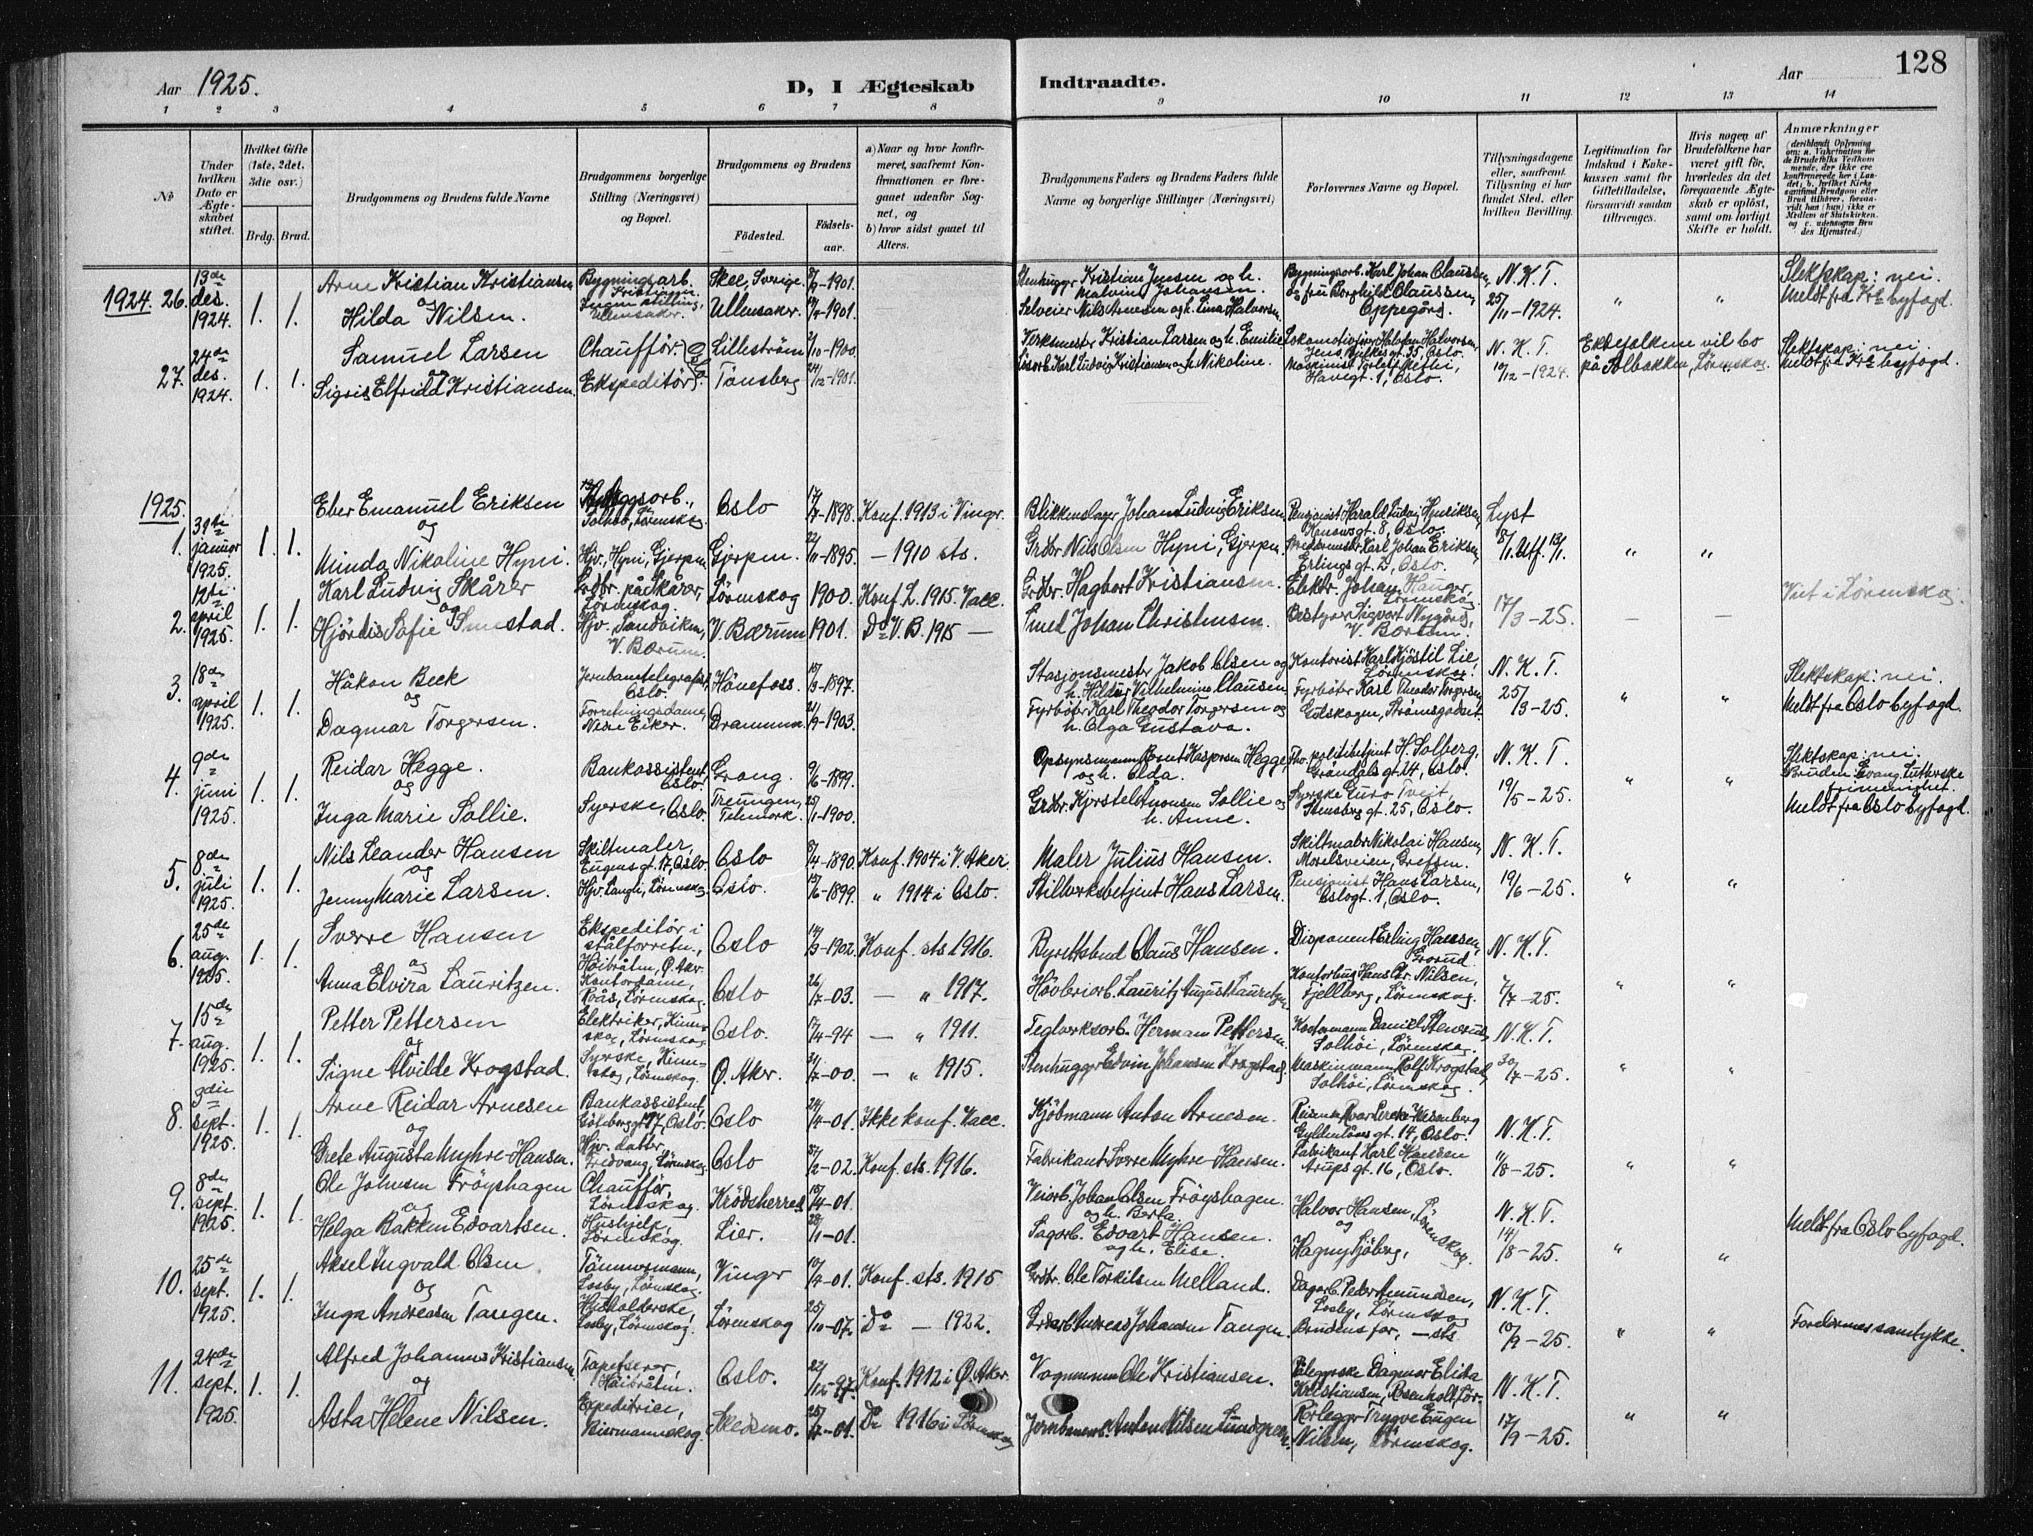 Aar 1925. D, I Ægteskab Indtraadte. Aar 128
1 2 3 4 5 6 7 8 9 10 11 12 13 14
No
Under hvilken Dato er Ægteskabet stiftet.
Hvilket Gifte (1ste, 2det, 3die osv.)
Brdg. Brud.
Brudgommens og Brudens fulde Navne
Brudgommens borgerlige Stilling (Næringsvei) og Bopæl.
Brudgommens og Brudens
Fødested. Fødselsaar.
a) Naar og hvor konfirmeret, saafremt Konfirmationen er foregaaet udenfor Sognet, og
b) hvor sidst gaaet til Alters.
Brudgommens Faders og Brudens Faders fulde Navne og borgerlige Stillinger (Næringsvei)
Forlovernes Navne og Bopæl.
Tillysningsdagene eller, saafremt Tillysning ei har fundet Sted, efter hvilken Bevilling.
Legitimation for Indskud i Enkekassen samt for Giftetilladelse, forsaavidt saadan tiltrænges.
Hvis nogen af Brudefolkene har været gift før, hvorledes da det foregaaende Ægteskab er opløst, samt om lovligt Skifte er holdt.
Anmærkninger
1924. 26. 13de des. 1924. 1. 1.
Arne Kristian Kristiansen og Hilda Nilsen.
Bygningsarb. Kristiania. Ingen stilling, Ullensaker.
Skee, Sverige 1901. Ullensaker 1901.
Stenhugger Kristian Jensen og h. Malvine Johansen.
Selveier Nils Arnesen og h. Lina Halvorsen.
Bygningsarb. Karl Johan Claussen, og fru Borghild Claussen, Oppegård.
N. K. T. 25/11-1924. " "
Slektskap: nei. Meldt fra Kra byfogd.
27. 24de des. 1924. 1. 1.
Samuel Larsen og Sigris Elfrida Kristiansen.
Chauffør. Ekspeditør. Oslo
Lilleström 1/10-1900. Tønsberg 24/12-1901.
Verksmester Kristian Larsen og h. Emilie
Karl Ludvig Kristiansen og h. Nikoline.
Lokomotivfyr. Halfdan Halvorsen, Jens Bjelkesgt. 55, Oslo.
Havegt. 1, Oslo.
N. K. T. 10/12-1924.
Ektefolkene vil bo på Solbakken, Lørenskog.
Slektskap: nei. Meldt fra Kra byfogd.
1925.
1. 31te januar 1925. 1. 1.
Eber Emanuel Eriksen og Minda Nikoline Hyni.
Solhøi, Lørenskog. Hjv., Hyni, Gjerpen
Oslo 17/7-1898. Konf. 1913 i Vinger.
Gjerpen 22/11-1895. — 1910 sts.
Blikkenslager Johan Ludvig Eriksen
Grdbr. Nils Olsen Hyni, Gjerpen.
Pensjonist Harald Ludvig Henriksen, Hansensgt. 8, Oslo.
Karl Johan Eriksen, Erlingsgt. 2, Oslo.
Lyst Utf. 13/1. " "
2. 12te april 1925. 1. 1.
Karl Ludvig Skårer og Hjördis Sofie Smestad.
Grdbr. på Skårer, Lørenskog. Hjv. Sandviken, V. Bærum.
Lörenskog 1900. Konf. L. 1915. Vacc.
V. Bærum 1901. Do V. B. 1915 —
Grdbr. Hagbart Kristiansen.
Smed Johan Christensen.
Elektr. Johan Hauger, Lørenskog.
Bestyrer Sigvart Nygård, V. Bærum.
17/3-25. — —
Viet i Lørenskog.
3. 18de april 1925. 1. 1.
Håkon Beck og Dagmar Torgersen.
Jernbanetelegrafist, Oslo. Forretningsdame, Nedre Eiker.
Hönefoss. 15/3-1897. Drammen. 21/9-1903.
Stasjonsmester Jakob Olsen og h. Hilda Vilhelmine Clausen
Fyrbøter Karl Theodor Torgersen og h. Olga Gustava.
Kontorist Karl Kjøstil Lie, Lørenskog.
Fyrbøter Karl Theodor Torgersen, Gulskogen, Strømsgodset.
N. K. T. 25/3-25. " "
Slektskap: nei. Meldt fra Oslo byfogd.
4. 9de juni 1925. 1. 1.
Reidar Hegge. og Inga Marie Sollie.
Bankassistent, Oslo. Syerske, Oslo.
Grong. 9/6-1899. Treungen, Telemark. 25/1-1900.
Opsynsmann Bernt Kaspersen Hegge, og h. Elda.
Grdbr. Kjøstel Aronsen Sollie og h. Anne.
Fhv. politibetjent H. Solberg, Gröndalsgt. 14, Oslo.
Syerske Guro Tveit, Stensberggt. 25, Oslo.
N. K. T. 19/5-25. " "
Slektskap: nei. Bruden Evang. Lutherske frimenighet. Meldt fra Oslo byfogd.
5. 8de juli 1925. 1. 1.
Nils Leander Hansen og Jenny Marie Larsen.
Skiltmaler, Eugensgt. 17, Oslo. Hjv. Langli, Lørenskog.
Oslo 5/4-1890 Konf. 1904 i V. Aker.
Oslo. 15/6-1899. " 1914 i Oslo.
Maler Julius Hansen.
Stillverksbetjent Hans Larsen.
Skiltmaler Nikolai Hansen, Morelsveien, Grefsen.
Pensjonist Hans Larsen, Oslogt. 1, Oslo.
N. K. T. 19/6-25. " "
6. 25de aug. 1925. 1. 1.
Sverre Hansen og Anna Elvira Lauritzen.
Ekspeditør i stålforretn., Høibråten, Ø. Aker. Kontordame, Roås, Lørenskog.
Oslo 19/3-1902. Konf. sts. 1916.
Oslo 26/7-03. — " 1917.
Byrettsbud Claus Hansen.
Høvleriarb. Lauritz August Lauritzen
Disponent Erling Hansen, Grorud.
Kontorbud Hans Chr. Nilsen, Fjellberg, Lørenskog.
N. K. T. 7/7-25. " "
7. 15de aug. 1925. 1. 1.
Petter Pettersen og Signe Alvilde Krogstad.
Elektriker, Kinnskog, Lørenskog. Syerske, Kinnskog, Lørenskog.
Oslo. 17/4-94 — " 1911.
Ø. Aker. 31/7-00. — " 1915.
Teglverksarb. Herman Pettersen.
Stenhugger Edvin Johansen Krogstad,
Kontormann Daniel Stensrud, Solhöi, Lörenskog.
Maskinmann Rolf Krogstad, Solhöi, Lörenskog.
N. K. T. 30/7-25. " "
8. 3die sept. 1925. 1. 1.
Arne Reidar Arnesen og Grete Augusta Myhre-Hansen.
Bankassistent, Göteborggt. 17, Oslo. Hjv. datter, Fredvang, Lørenskog.
Oslo 24/4-01. Ikke konf. Vacc.
Oslo 27/2-02. Konf. sts. 1916.
Kjøbmann Anton Arnesen.
Fabrikant Sverre Myhre-Hansen.
Gyldenløvesgt. 14, Oslo.
Fabrikant Karl Hansen Arupsgt. 16, Oslo.
N. K. T. 11/8-25. " "
9. 8de sept. 1925. 1. 1.
Ole Johnsen Fröyshagen og Helga Bakken Edvartsen.
Chauffør, Lørenskog. Hushjelp, Lørenskog.
Krödsherred 15/4-01. Lier. 28/1-01.
Veiarb. Johan Olsen Fröyshagen. og h. Berta.
Sagarb. Edvart Hansen. og h. Elise.
Halvor Hansen, og Hagny Sjøberg, Lørenskog.
N. K. T. 14/8-25. " "
Meldt fra Oslo byfogd.
10. 25de sept. 1925. 1. 1.
Aksel Ingvald Olsen og Inga Andreasen Tangen.
Tømmermann, Losby, Lørenskog. Husholderske, Losby, Lørenskog.
Vinger 10/4-01. Konf. sts. 1915.
Lørenskog 25/10-07. Do — 1922.
Grdbr. Ole Torkilsen Melland.
Andreas Johansen Tangen.
Dagarb. Peder Amundsen, Losby, Lørenskog
Brudens far, — sts.
N. K. T. 10/9-25. " "
Foreldrenes samtykke.
11. 24de sept. 1925. 1. 1.
Alfred Johannes Kristiansen og Asta Helene Nilsen.
Tapetserer, Høibråten. Expeditrice, Biermannskog.
Oslo. 22/12-97. Konf. 1912 i Ø. Aker.
Skedsmo. 25/7-01. Do 1916 i Lørenskog
Vognmann Ole Kristiansen.
Jernbanearb. Anton Nilsen Lundgren.
Pleierske Dagmar Elida Kristiansen,
Rørlegger Trygve Eugen Nilsen, Lørenskog.
N. K. T. 17/9-25. " "